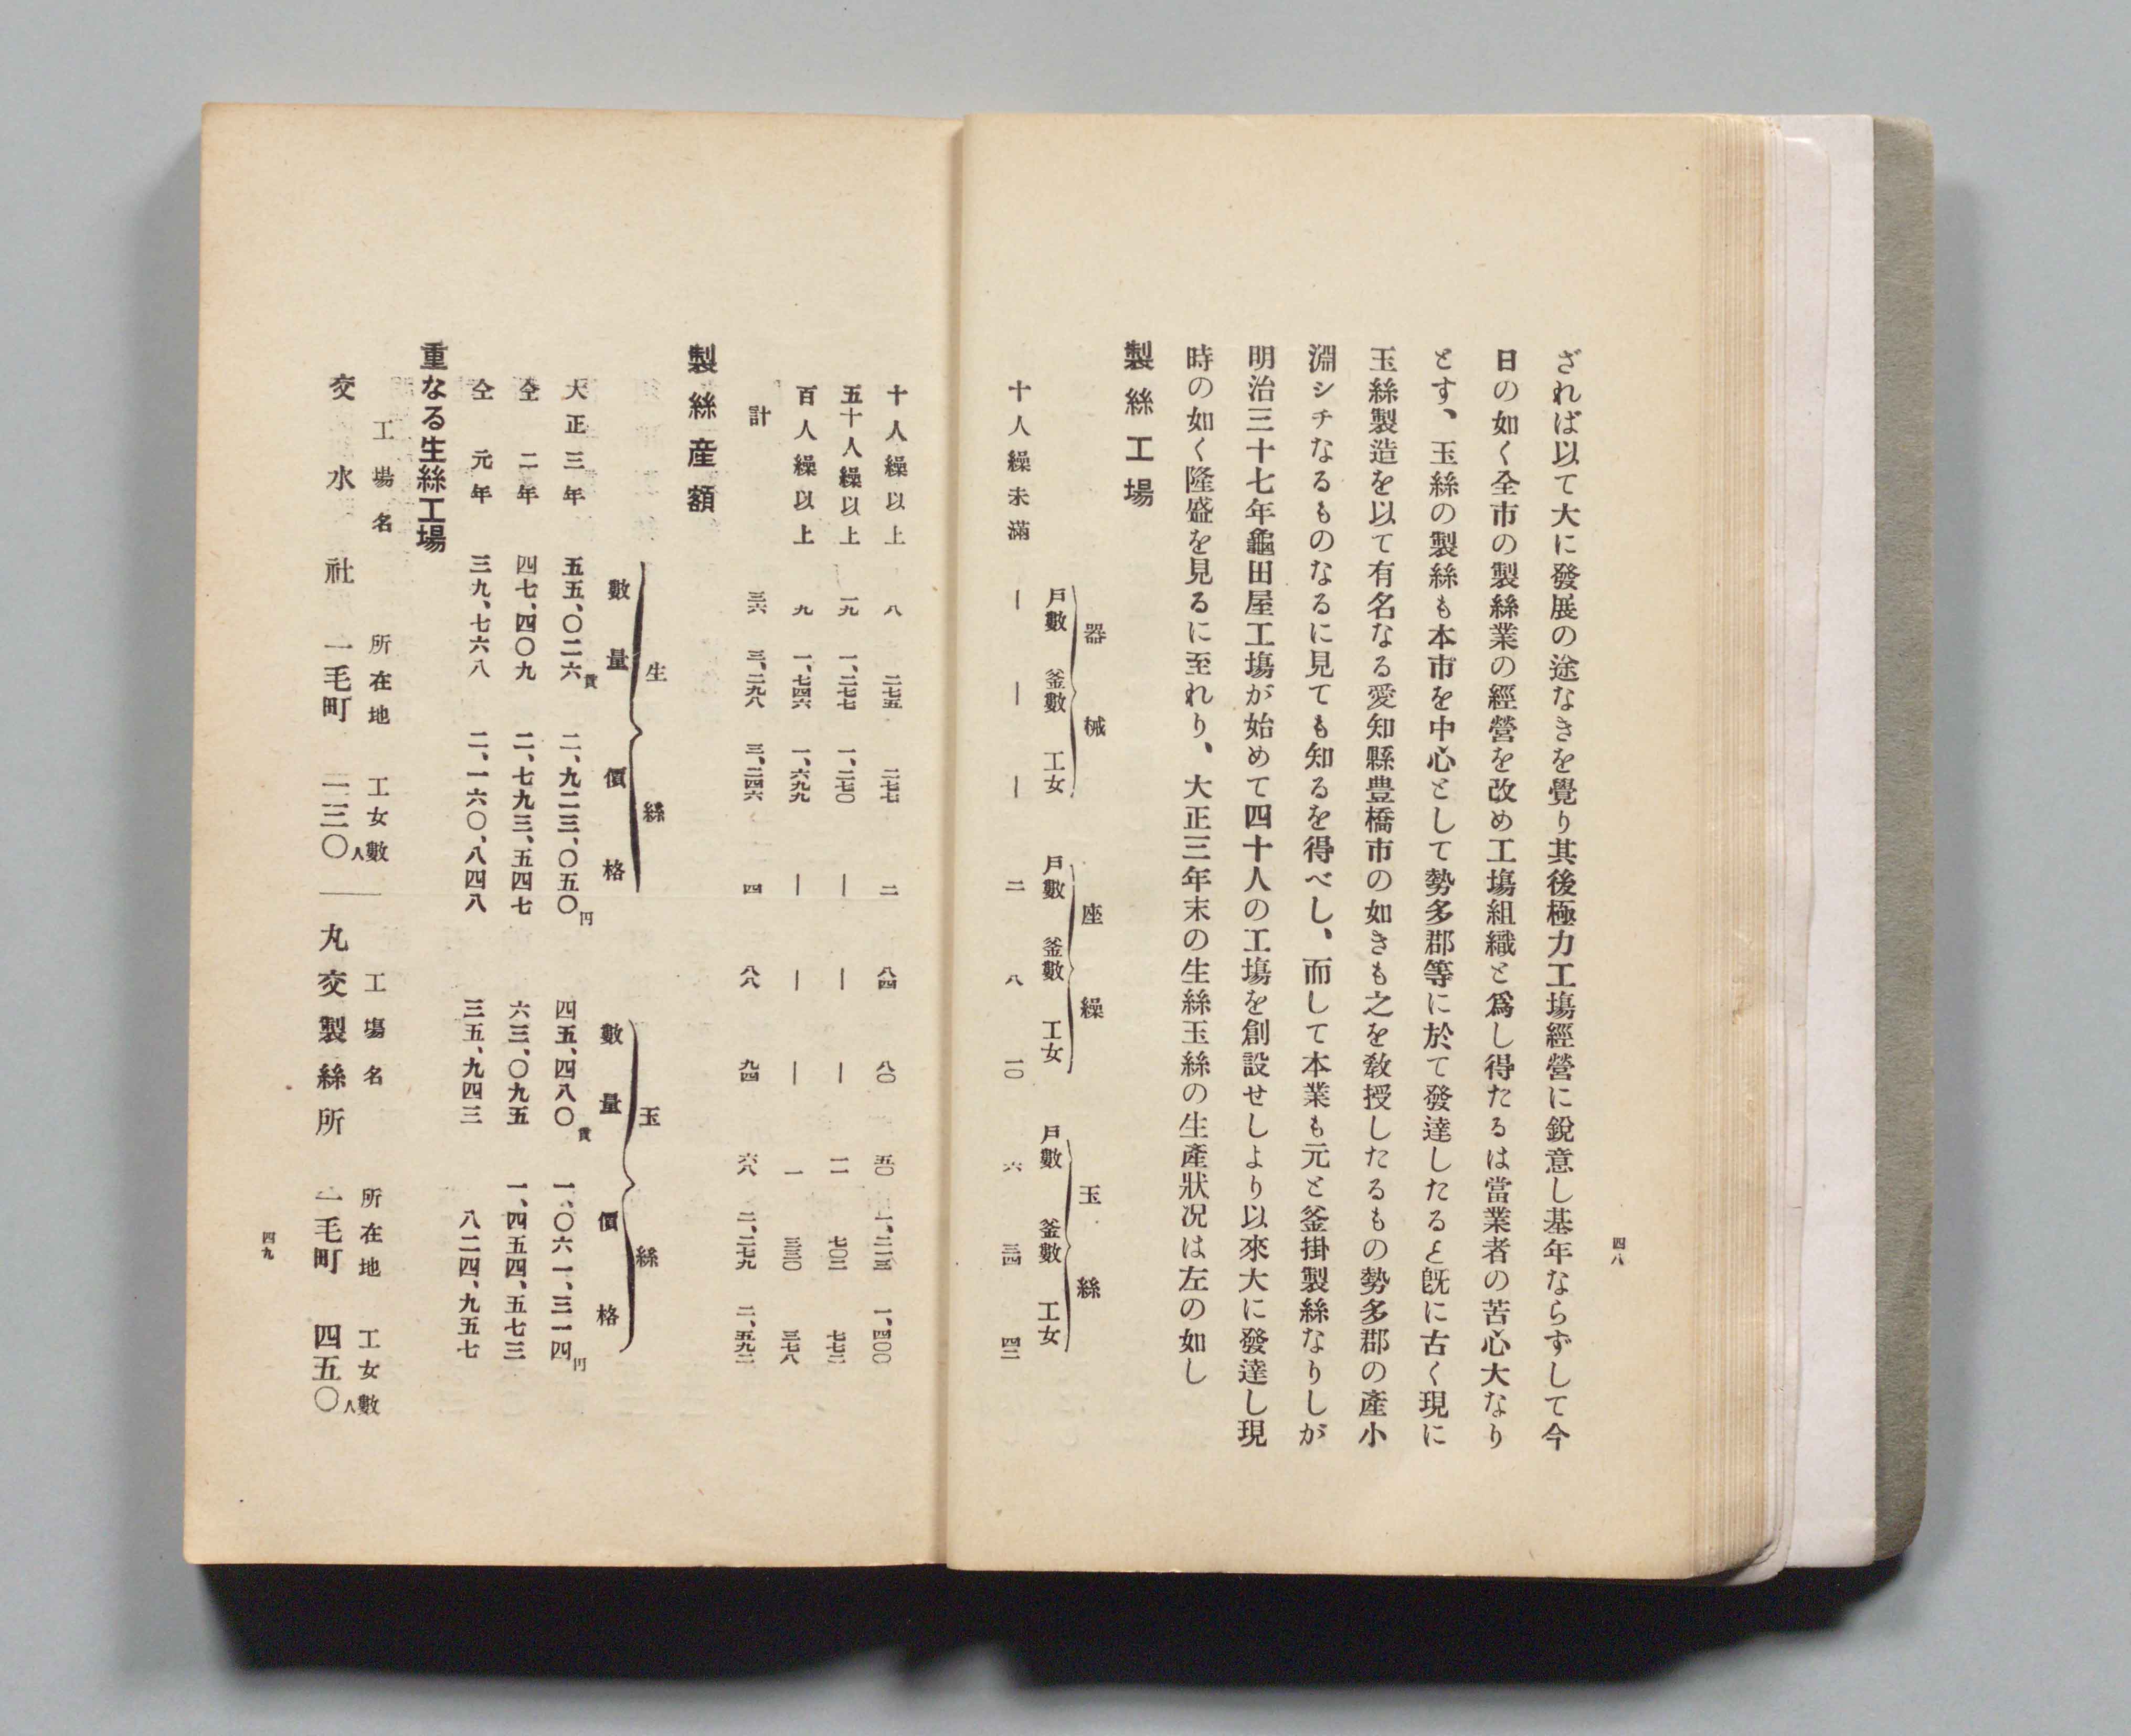 四八
ざれば以て大に發展の途なきを覺り其後極力工塲經營に銳意し基年ならずして今
日の如く全市の製絲業の經營を改め工塲組織と爲し得たるは當業者の苦心大なり
とす、玉絲の製絲も本市を中心として勢多郡等に於て發達したると既に古く現に
玉絲製造を以て有名なる愛知縣豊橋市の如きも之を敎授したるもの勢多郡の產小
淵シチなるものなるに見ても知るを得べし、而して本業も元と釜掛製絲なりしが
明治三十七年龜田屋工塲が始めて四十人の工塲を創設せしより以來大に發達し現
時の如く隆盛を見るに至れり、大正三年末の生絲玉絲の生產狀況は左の如し
製絲工塲
器械 座繰 玉絲
戶數 釜數 工女 戶數 釜數 工女 戶數 釜數 工女
十人繰未滿 ― ― ― 二 八 一〇 六 三四 四二
十人繰以上 八 二七五 二七七 二 八四 八〇 五〇 一、二一三 一、四〇〇
五十人繰以上 一九 一、二七七 一、二七〇 ― ― ― 一一 七〇二 七七二
百人繰以上 九 一、七四六 一、六九九 ― ― ― 一 三三〇 三七八
計 三六 三、二九八 三、二四六 四 八八 九四 六八 二、二七九 二、五九二
製絲產額
生絲 玉絲
數量 價格 數量 價格
大正三年 五五、〇二六貫 二、九二三、〇五〇円 四五、四八〇貫 一、〇六一、三一四円
仝二年 四七、四〇九 二、七九三、五四七 六三、〇九五 一、四五四、五七三
仝元年 三九、七六八 二、一六〇、八四八 三五、九四三 八二四、九五七
重なる生絲工場
工塲名 所在地 工女數 工塲名 所在地 工女數
交水社 一毛町 二三〇人 丸交製絲所 一毛町 四五〇人
四九